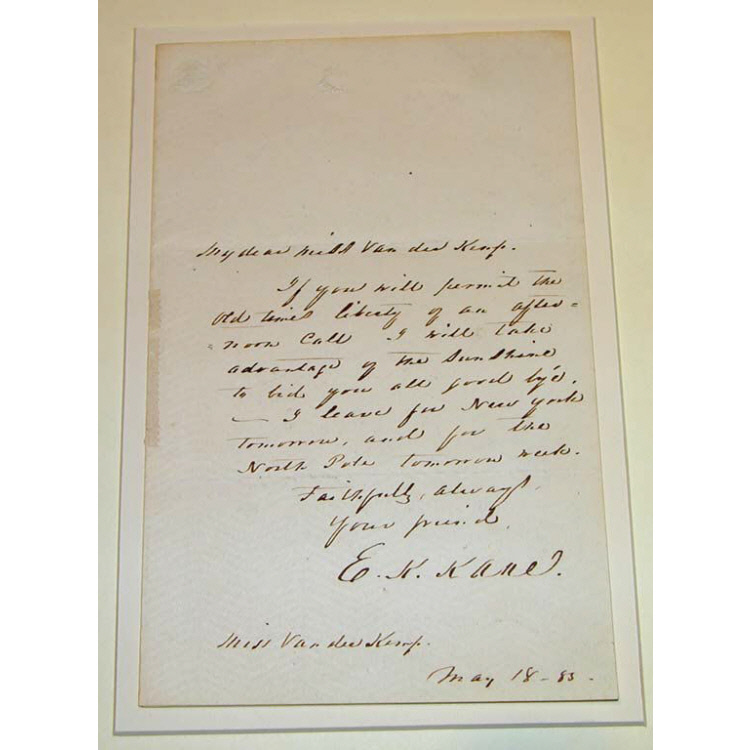 My dear Miss Van der Kemp.
If you will permit the
old times liberty of an after=
noon call I will take
advantage of the sunshine
to bid you all good bye.
— I leave for New York
tomorrow, and for the
North Pole tomorrow week.
Faithfully, always,
Your friend,
E. K. Kane.
Miss Van der Kemp.
May 18 - 53.